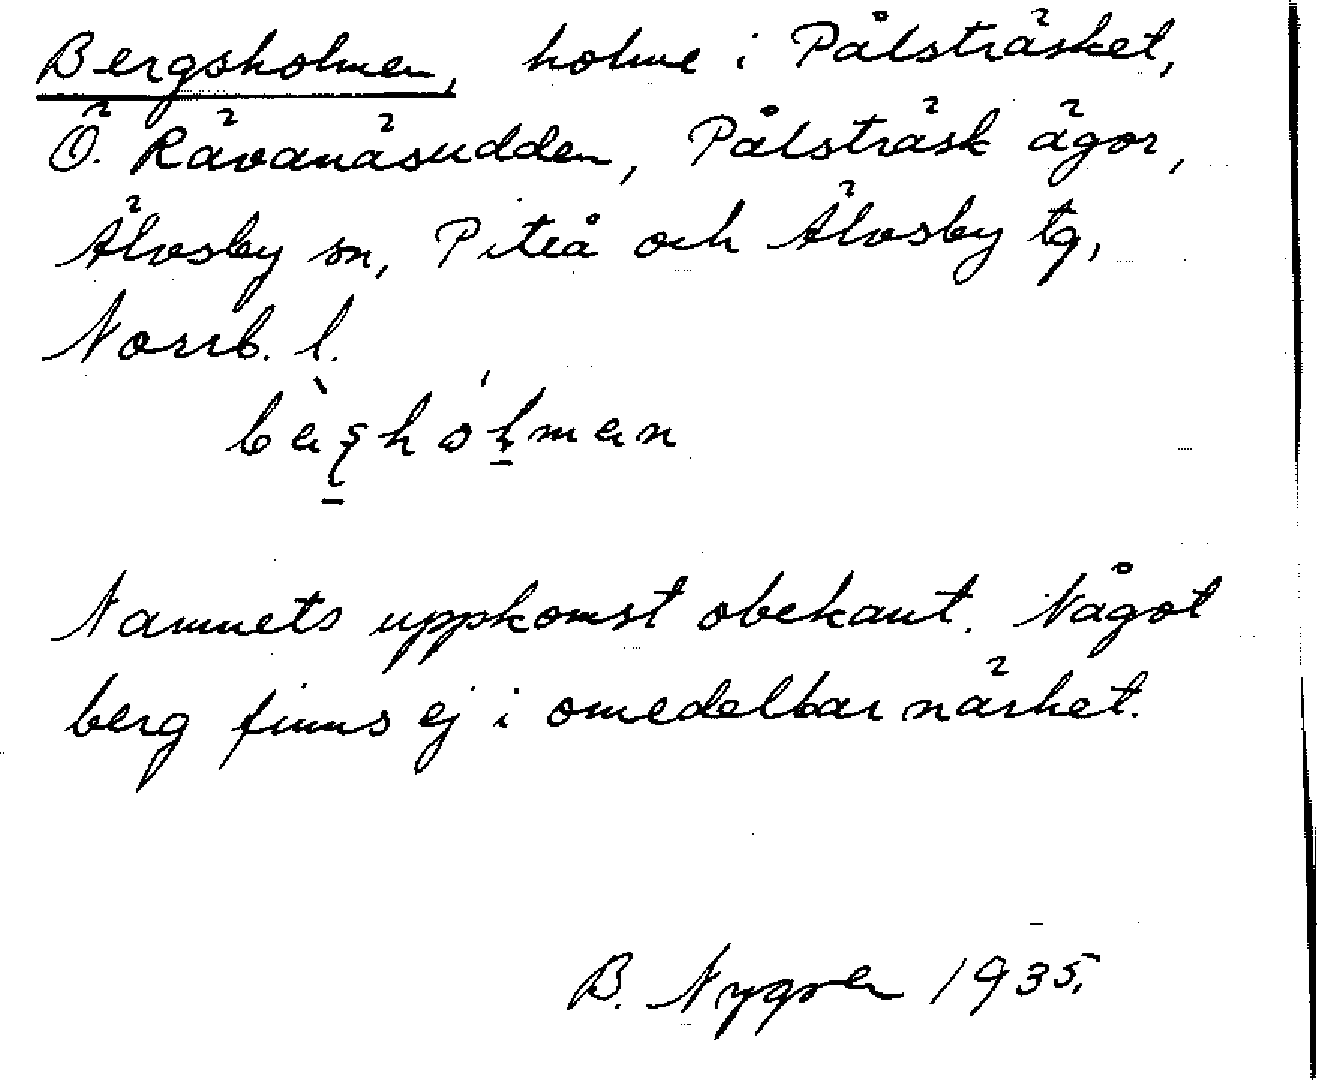 Bergsholmen, holme i Pålsträsket,
Ö. Rävanäsudden, Pålsträsk ägor,
Älvsby sn, Piteå och Älvsby tg,
Norrb. l.
Namnets uppkomst obekant. Något
berg finns ej i omedelbar närhet.
B. Nygren 1935.